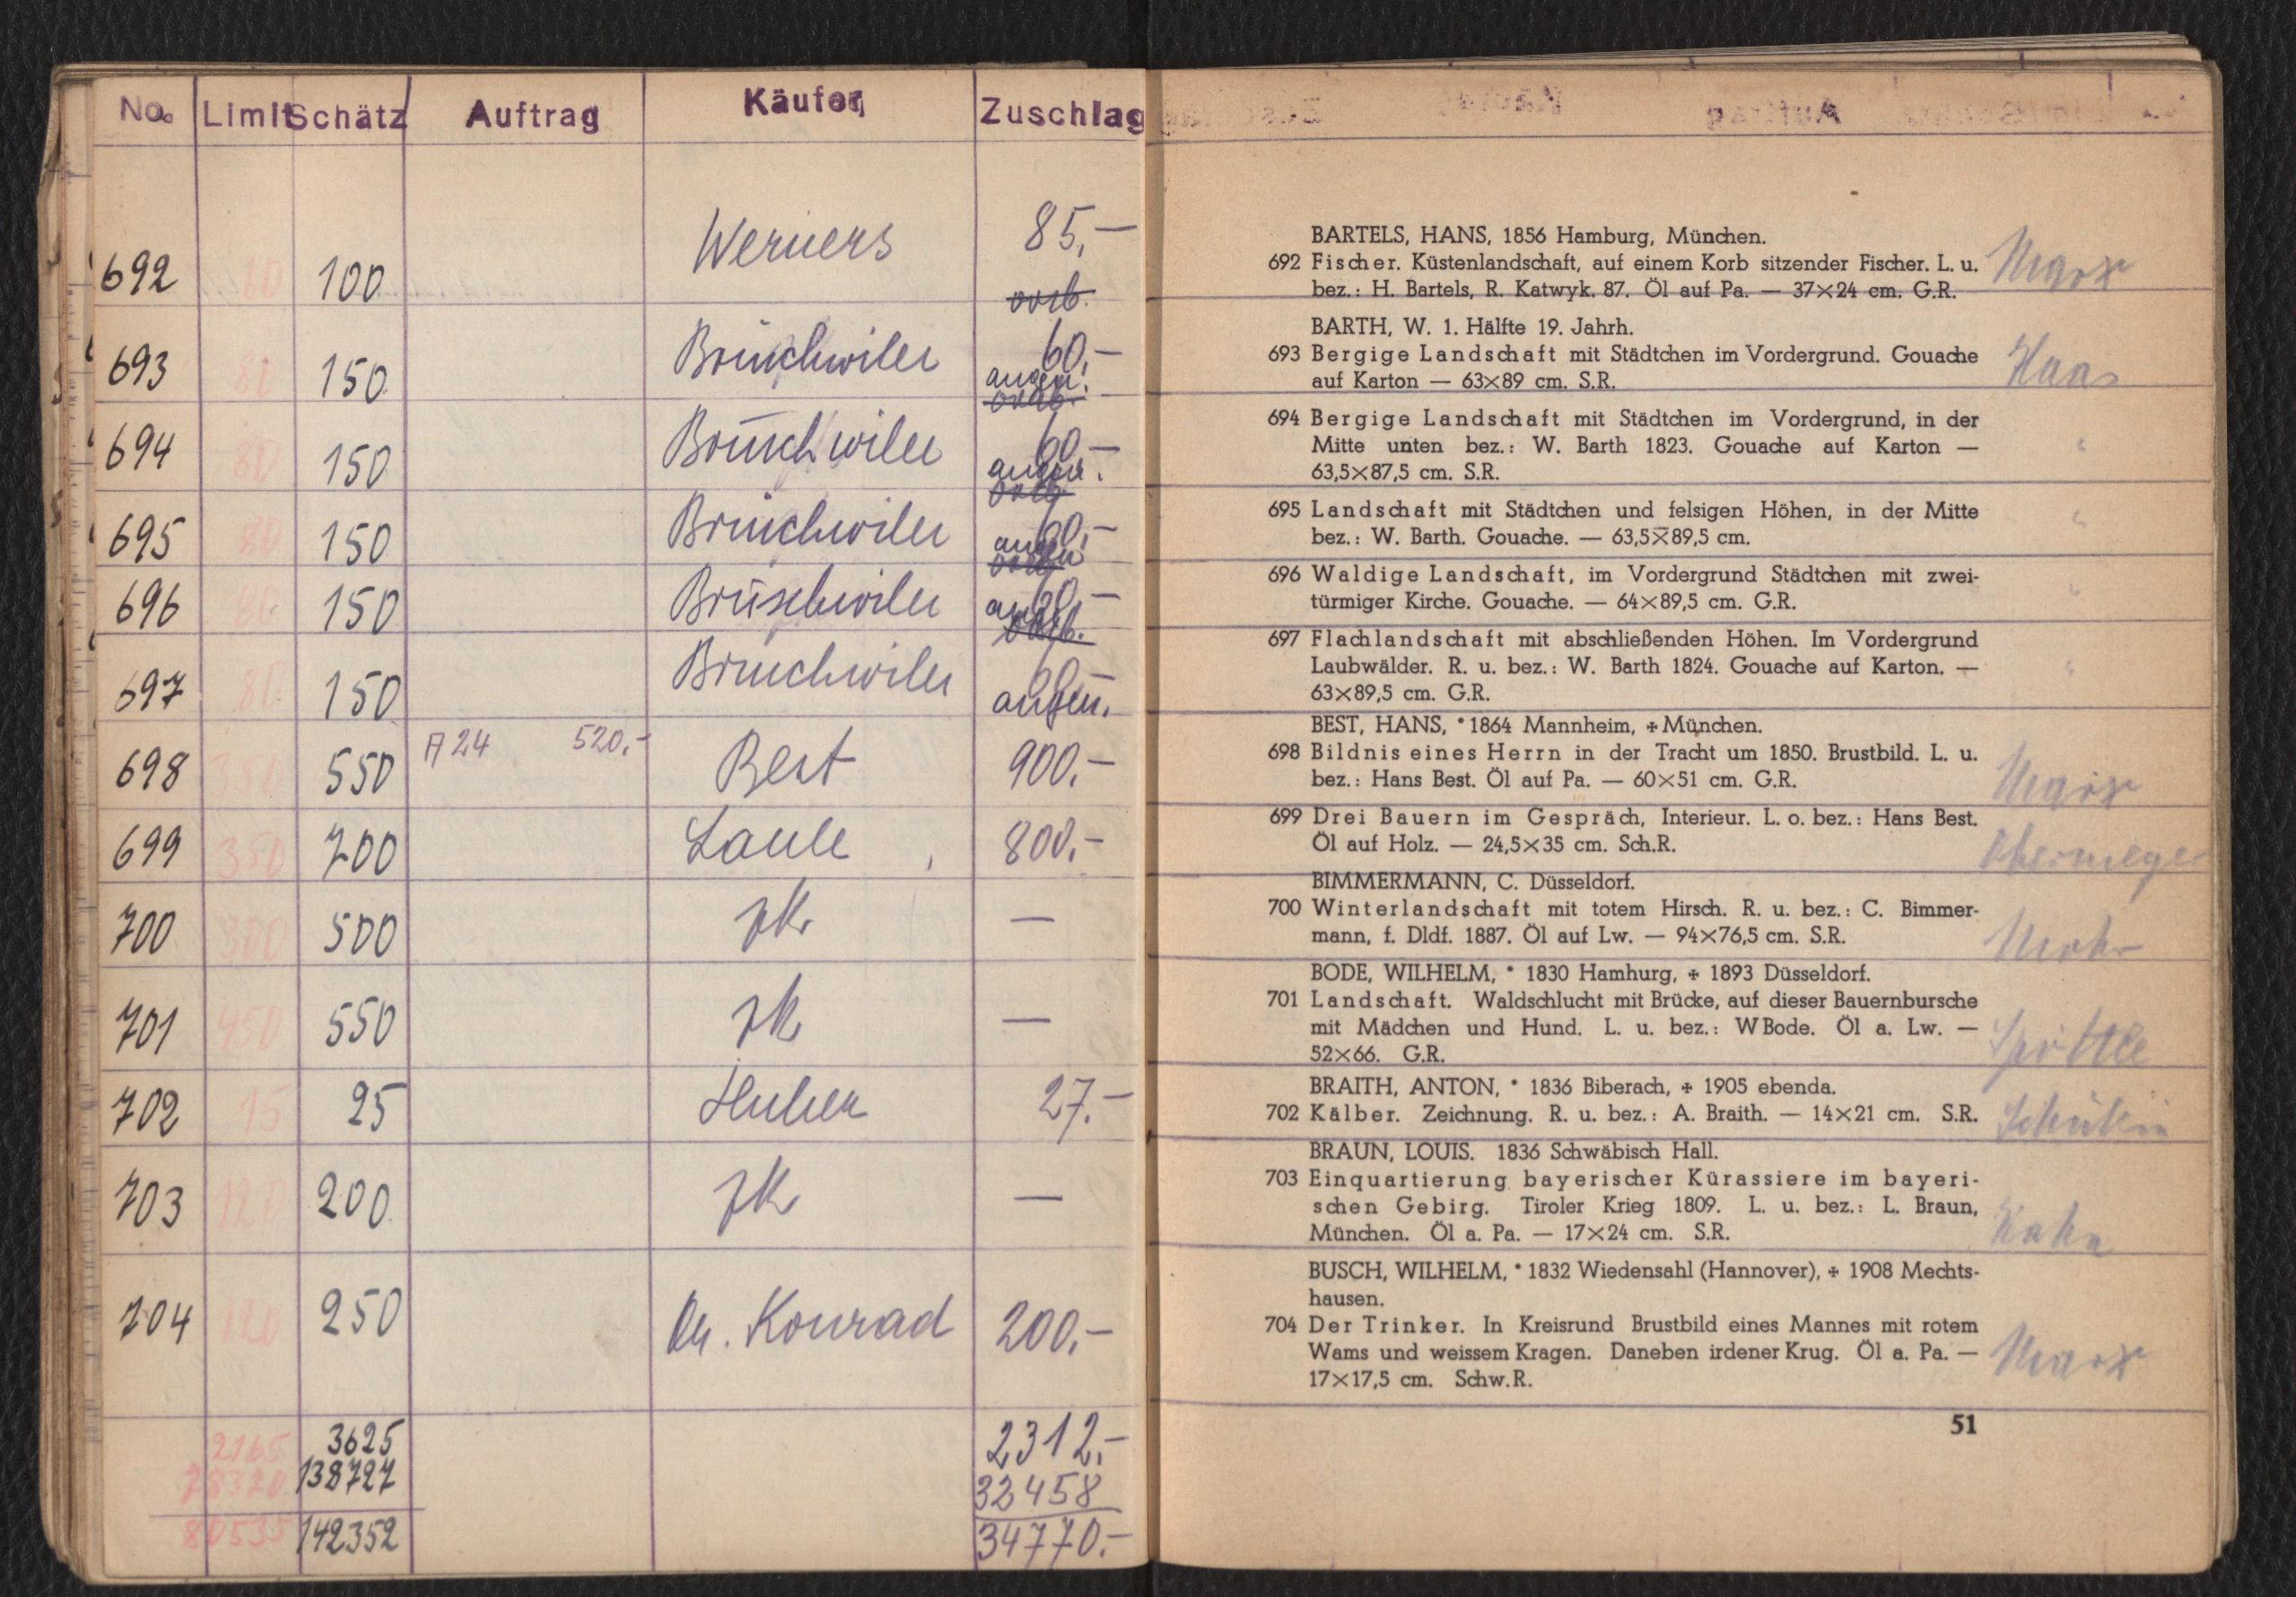 No. Limit Schätz Auftrag Käufer Zuschlag
692 100 Werners 85,—
vorb.
693 80 150 Brüschwiler 60,—
angen.
694 80 150 Brüschwiler 60,—
angen.
695 80 150 Brüschwiler 60,—
angen
696 80 150 Brüschwiler 60,—
697 80 150 Brüschwiler 60,—
angen.
698 350 550 A 24 520.- Best 900.—
699 350 700 Laule 800.—
700 300 500 zk. —
701 450 550 zk —
702 15 25 Huber 27.—
703 120 200 zk —
704 120 250 Dr. Konrad 200.—
2165 3625 2312.—
78370 138727 32458
80535 142352 34770.—
BARTELS, HANS, 1856 Hamburg, München.
692 Fischer. Küstenlandschaft, auf einem Korb sitzender Fischer. L. u. Marx
bez.: H. Bartels, R. Katwyk. 87. Öl auf Pa. — 37×24 cm. G.R.
BARTH, W. 1. Hälfte 19. Jahrh.
693 Bergige Landschaft mit Städtchen im Vordergrund. Gouache Haas
auf Karton — 63×89 cm. S.R.
694 Bergige Landschaft mit Städtchen im Vordergrund, in der
Mitte unten bez.: W. Barth 1823. Gouache auf Karton — "
63,5×87,5 cm. S.R.
695 Landschaft mit Städtchen und felsigen Höhen, in der Mitte "
bez.: W. Barth. Gouache. — 63,5×89,5 cm.
696 Waldige Landschaft, im Vordergrund Städtchen mit zwei- "
türmiger Kirche. Gouache. — 64×89,5 cm. G.R.
697 Flachlandschaft mit abschließenden Höhen. Im Vordergrund
Laubwälder. R. u. bez.: W. Barth 1824. Gouache auf Karton. — "
63×89,5 cm. G.R.
BEST, HANS, * 1864 Mannheim, + München.
698 Bildnis eines Herrn in der Tracht um 1850. Brustbild. L. u.
bez.: Hans Best. Öl auf Pa. — 60×51 cm. G.R. Marx
699 Drei Bauern im Gespräch, Interieur. L. o. bez.: Hans Best.
Öl auf Holz. — 24,5×35 cm. Sch.R. Obermeyer
BIMMERMANN, C. Düsseldorf.
700 Winterlandschaft mit totem Hirsch. R. u. bez.: C. Bimmer-
mann, f. Dldf. 1887. Öl auf Lw. — 94×76,5 cm. S.R. Mohr
BODE, WILHELM, * 1830 Hamhurg, + 1893 Düsseldorf.
701 Landschaft. Waldschlucht mit Brücke, auf dieser Bauernbursche
mit Mädchen und Hund. L. u. bez.: WBode. Öl a. Lw. —
52×66. G.R.
BRAITH, ANTON, * 1836 Biberach, + 1905 ebenda.
702 Kälber. Zeichnung. R. u. bez.: A. Braith. — 14×21 cm. S.R.
BRAUN, LOUIS. 1836 Schwäbisch Hall.
703 Einquartierung bayerischer Kürassiere im bayeri-
schen Gebirg. Tiroler Krieg 1809. L. u. bez.: L. Braun,
München. Öl a. Pa. — 17×24 cm. S.R. Kahn
BUSCH, WILHELM, * 1832 Wiedensahl (Hannover), + 1908 Mechts-
hausen.
704 Der Trinker. In Kreisrund Brustbild eines Mannes mit rotem
Wams und weissem Kragen. Daneben irdener Krug. Öl a. Pa. — Marx
17×17,5 cm. Schw.R.
51